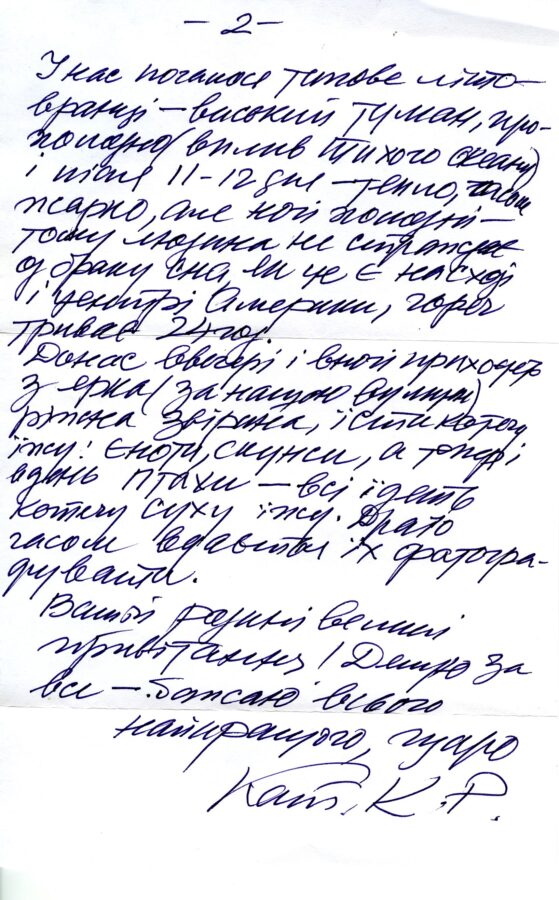 — 2 —
У нас почалося типове літо —
вранці — високий туман, про-
холодно (вплив Тихого Океану)
і після 11-12 дня — тепло, часом
жарко, але ночі холодні —
тому людина не страждає
од браку сна, як це є на сході
і центрі Америки, горяч
триває 24 год.
До нас ввечері і вночі приходить
з ярка (за нашою вулицею)
ріжна звірина, їсти котячу
їжу: єноти, скунси, а тоді і
вдень птахи — всі їдять
котячу суху їжу.
часом вдається їх фотогра-
фувати.
Вашій родині великі
привітання! Дякую за
все — бажаю всього
найкращого, щиро
Кат. К. Р.